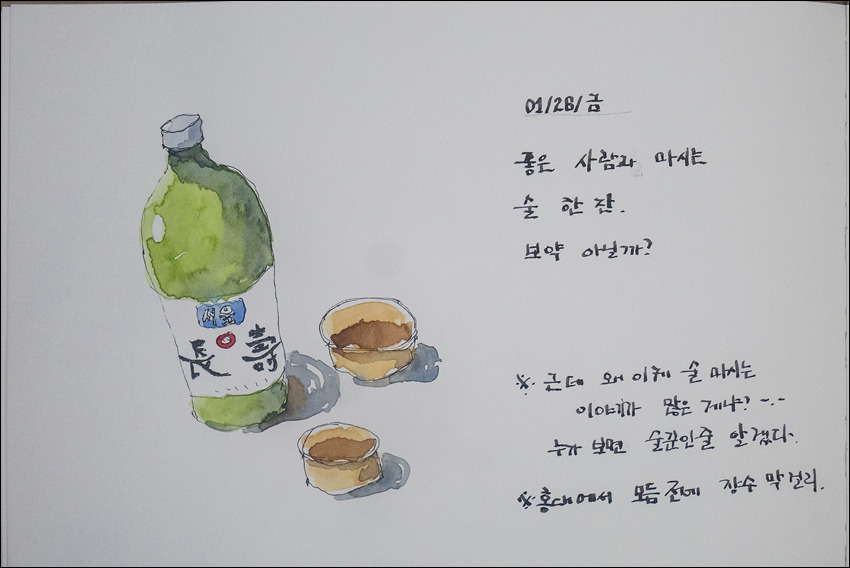 서울
長壽
01/26/금
좋은 사람과 마시는
술 한 잔.
보약 아닐까?
※ 근데 왜 이케 술 마시는
이야기가 많은 게냐? -.-
누가 보면 술꾼인줄 알겠다.
※ 홍대에서 모듬전에 장수 막걸리.